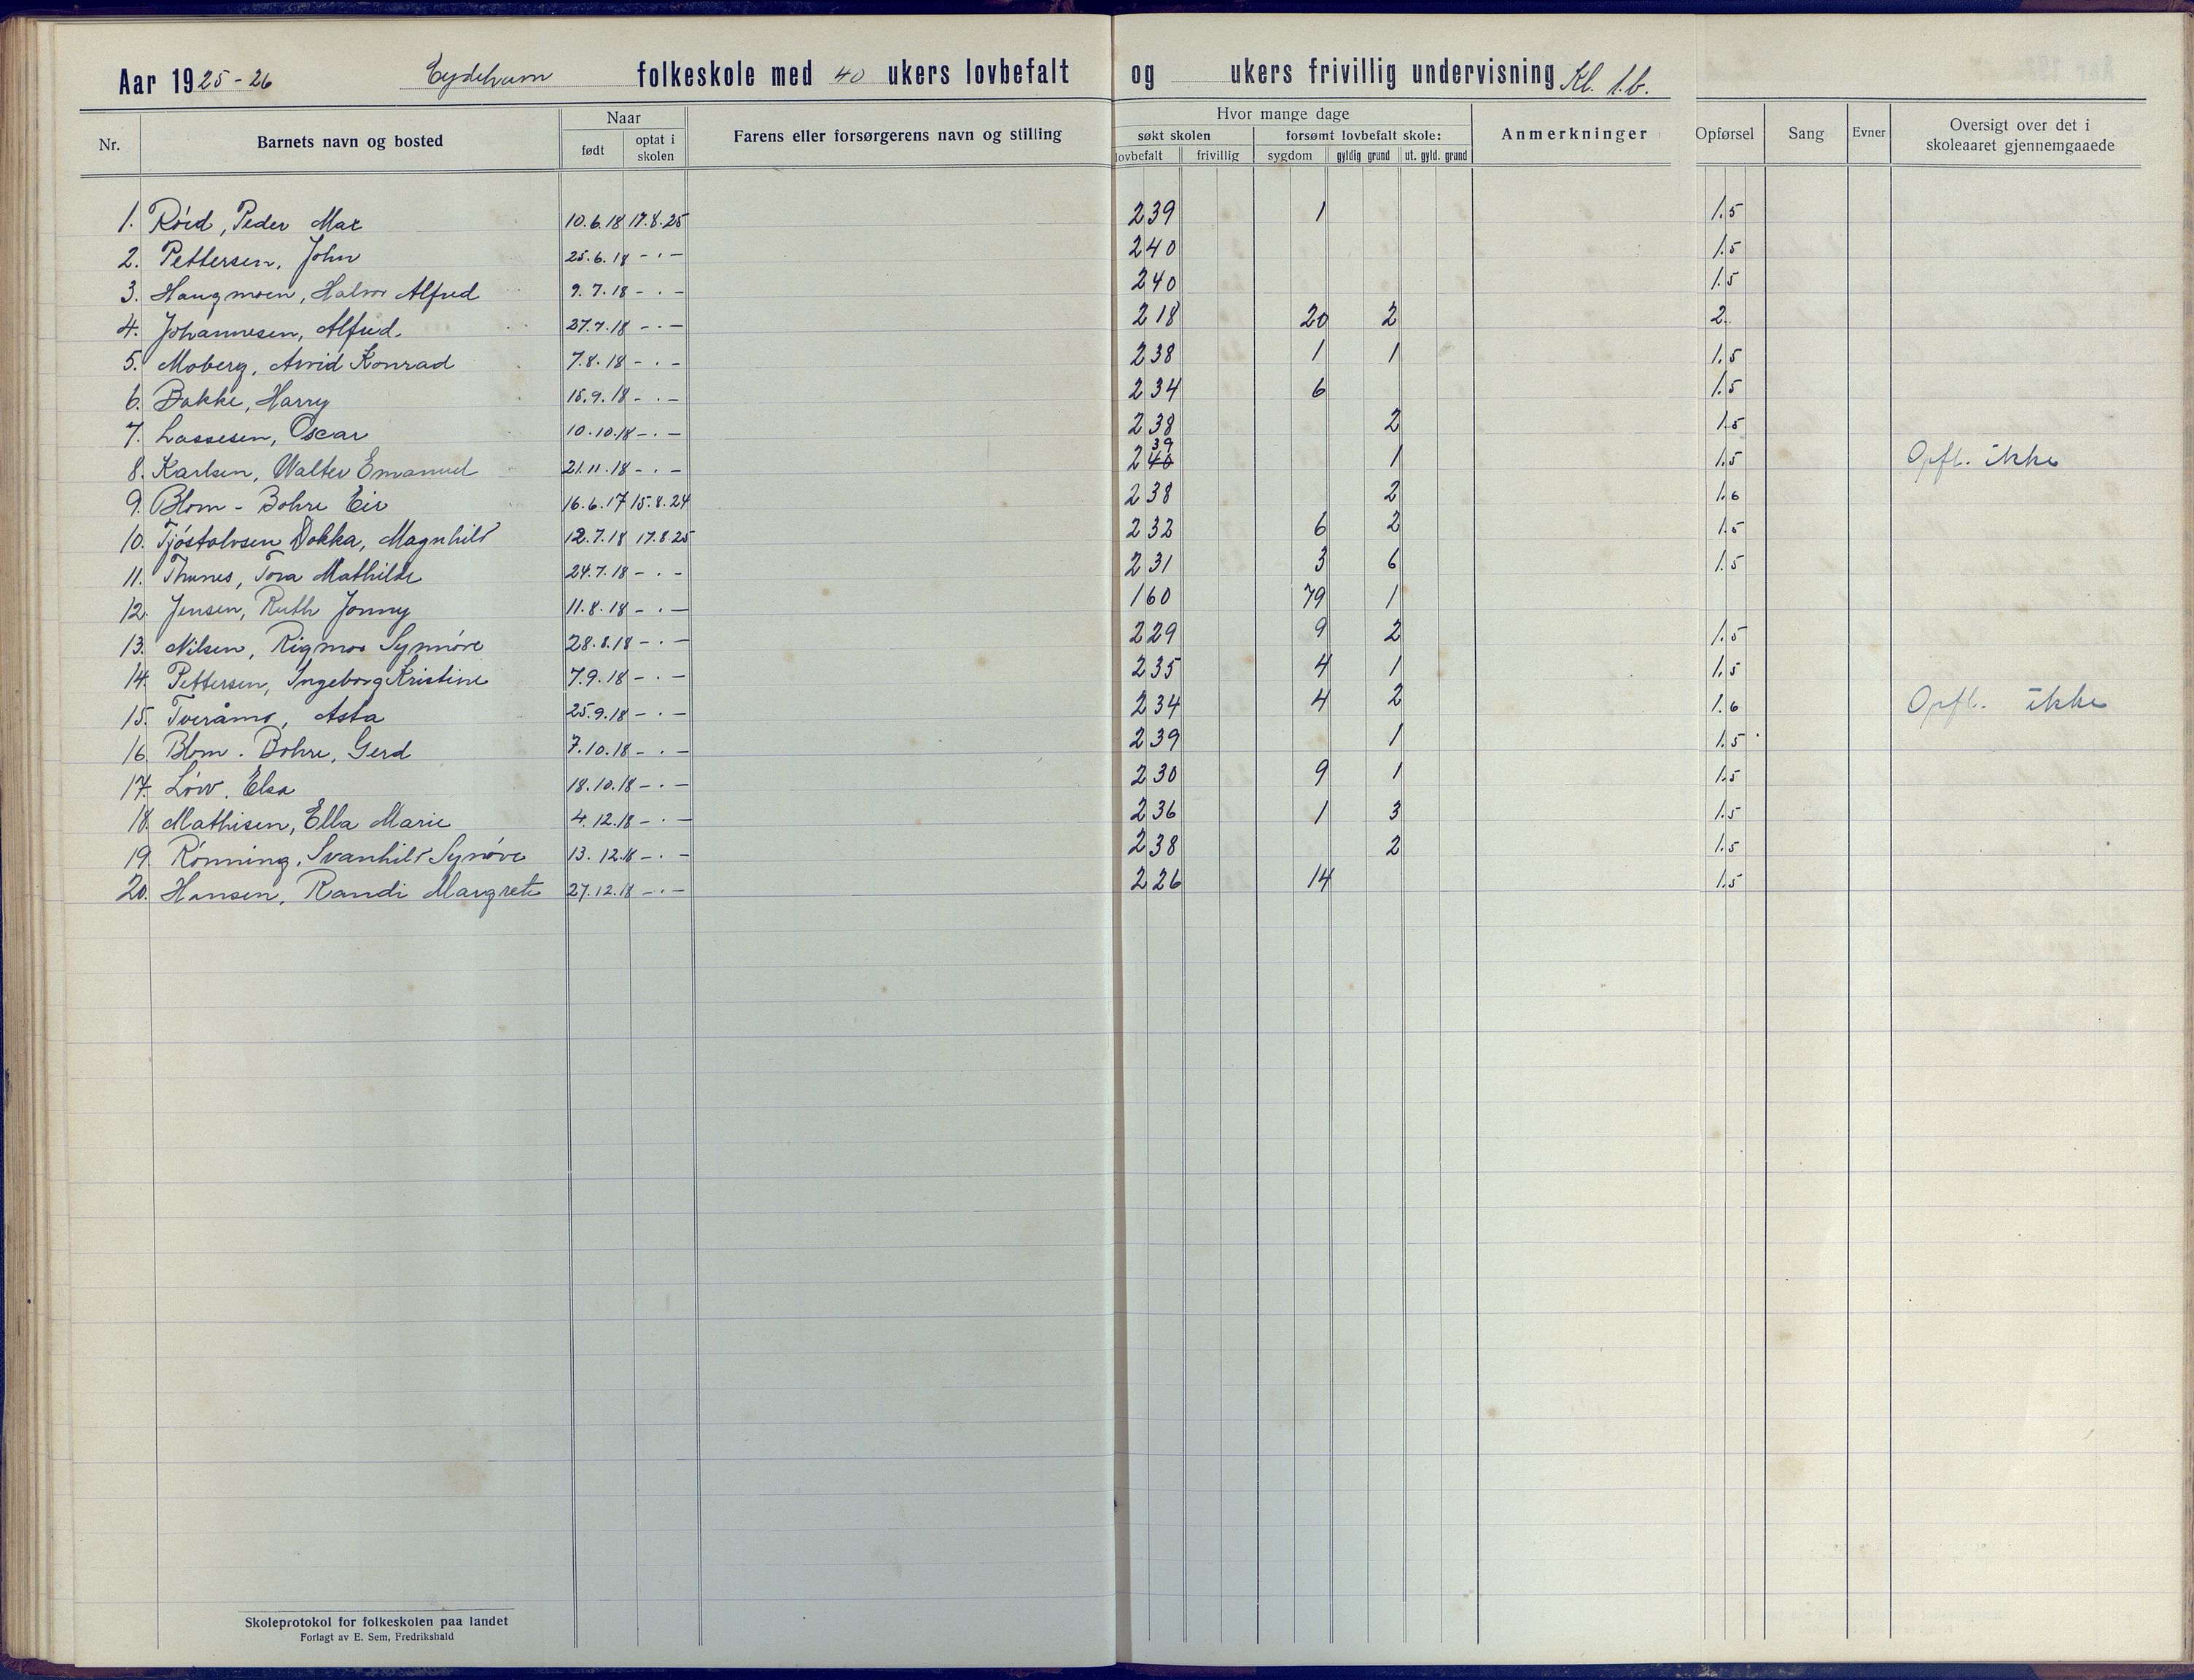 Aar 1925-26 Eydehavn folkeskole med 40 ukers lovbefalt og ukers frivillig undervisning Kl. 1.b.
Nr. Barnets navn og bosted Naar født optat i skolen Farens eller forsørgerens navn og stilling Hvor mange dage søkt skolen lovbefalt frivillig forsømt lovbefalt skole: sygdom gyldig grund ut. gyld. grund Anmerkninger Opførsel Sang Evner Oversigt over det i skoleaaret gjennemgaaede
1. Röed, Peder Max 10.6.18 17.8.25 239 1 1.5
2. Pettersen, John 25.6.18 - . - 240 1.5
3. Haugmoen, Halvor Alfred 9.7.18 - . - 240 1.5
4. Johannesen, Alfred. 27.7.18 - . - 218 20 2 2.
5. Moberg, Arvid Konrad 7.8.18 - . - 238 1 1 1.5
6. Bakke, Harry 15.9.18 - . - 234 6 1.5
7. Lassesen, Oscar 10.10.18 - . - 238 2 1.5
8. Karlsen, Walter Emanuel 21.11.18 - . - 240 39 1 1.5 Opfl. ikke
9. Blom - Bohre Eir 16.6.17 15.8.24 238 2 1.6
10. Tjöstolvsen Dokka, Magnhild 12.7.18 17.8.25 232 6 2 1.5
11. Thunes, Tora Mathilde 24.7.18 - . - 231 3 6 1.5
12. Jensen, Ruth Jonny 11.8.18 - . - 160 79 1
13. Nilsen, Rigmor Synnöve 28.8.18 - . - 229 9 2 1.5
14. Pettersen, Ingeborg Kristine 7.9.18 - . - 235 4 1 1.5
15. Tveråmo, Asta 25.9.18 - . - 234 4 2 1.6 Opfl. ikke
16. Blom . Bohre, Gerd 7.10.18 - . - 239 1 1.5
17. Löw. Elsa 18.10.18 - . - 230 9 1 1.5
18. Mathisen, Ella Marie 4.12.18 - . - 236 1 3 1.5
19. Rönning, Svanhild Synöve 13.12.18 - . - 238 2 1.5
20. Hansen, Randi Margrete 27.12.18 - . - 226 14 1.5
Skoleprotokol for folkeskolen paa landet
Forlagt av E. Sem, Fredrikshald